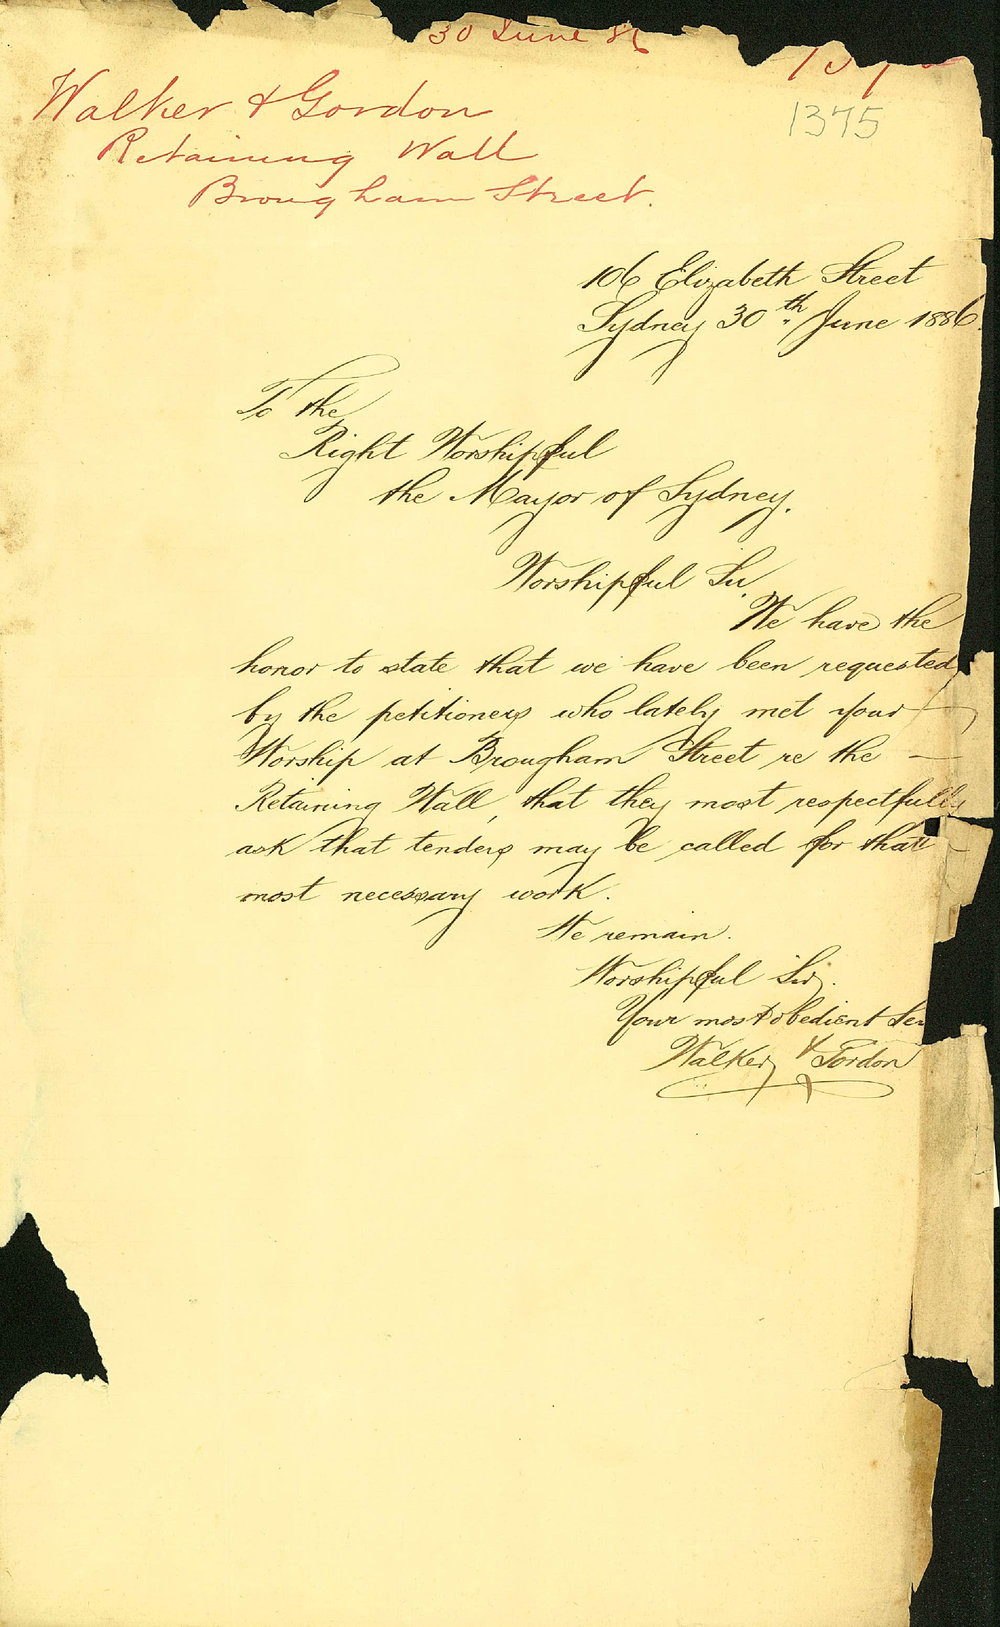 30 June 86
1375
Walker & Gordon
Retaining Wall
Brougham Street.
106 Elizabeth Street
Sydney 30th June 1886.
To the
Right Worshipful
the Mayor of Sydney.
Worshipful Sir,
We have the
honor to state that we have been requested
by the petitioners who lately met your
Worship at Brougham Street re the —
Retaining Wall, that they most respectfully
ask that tenders may be called for that
most necessary work.
We remain.
Worshipful Sir,
Your most obedient Ser
Walker & Gordon